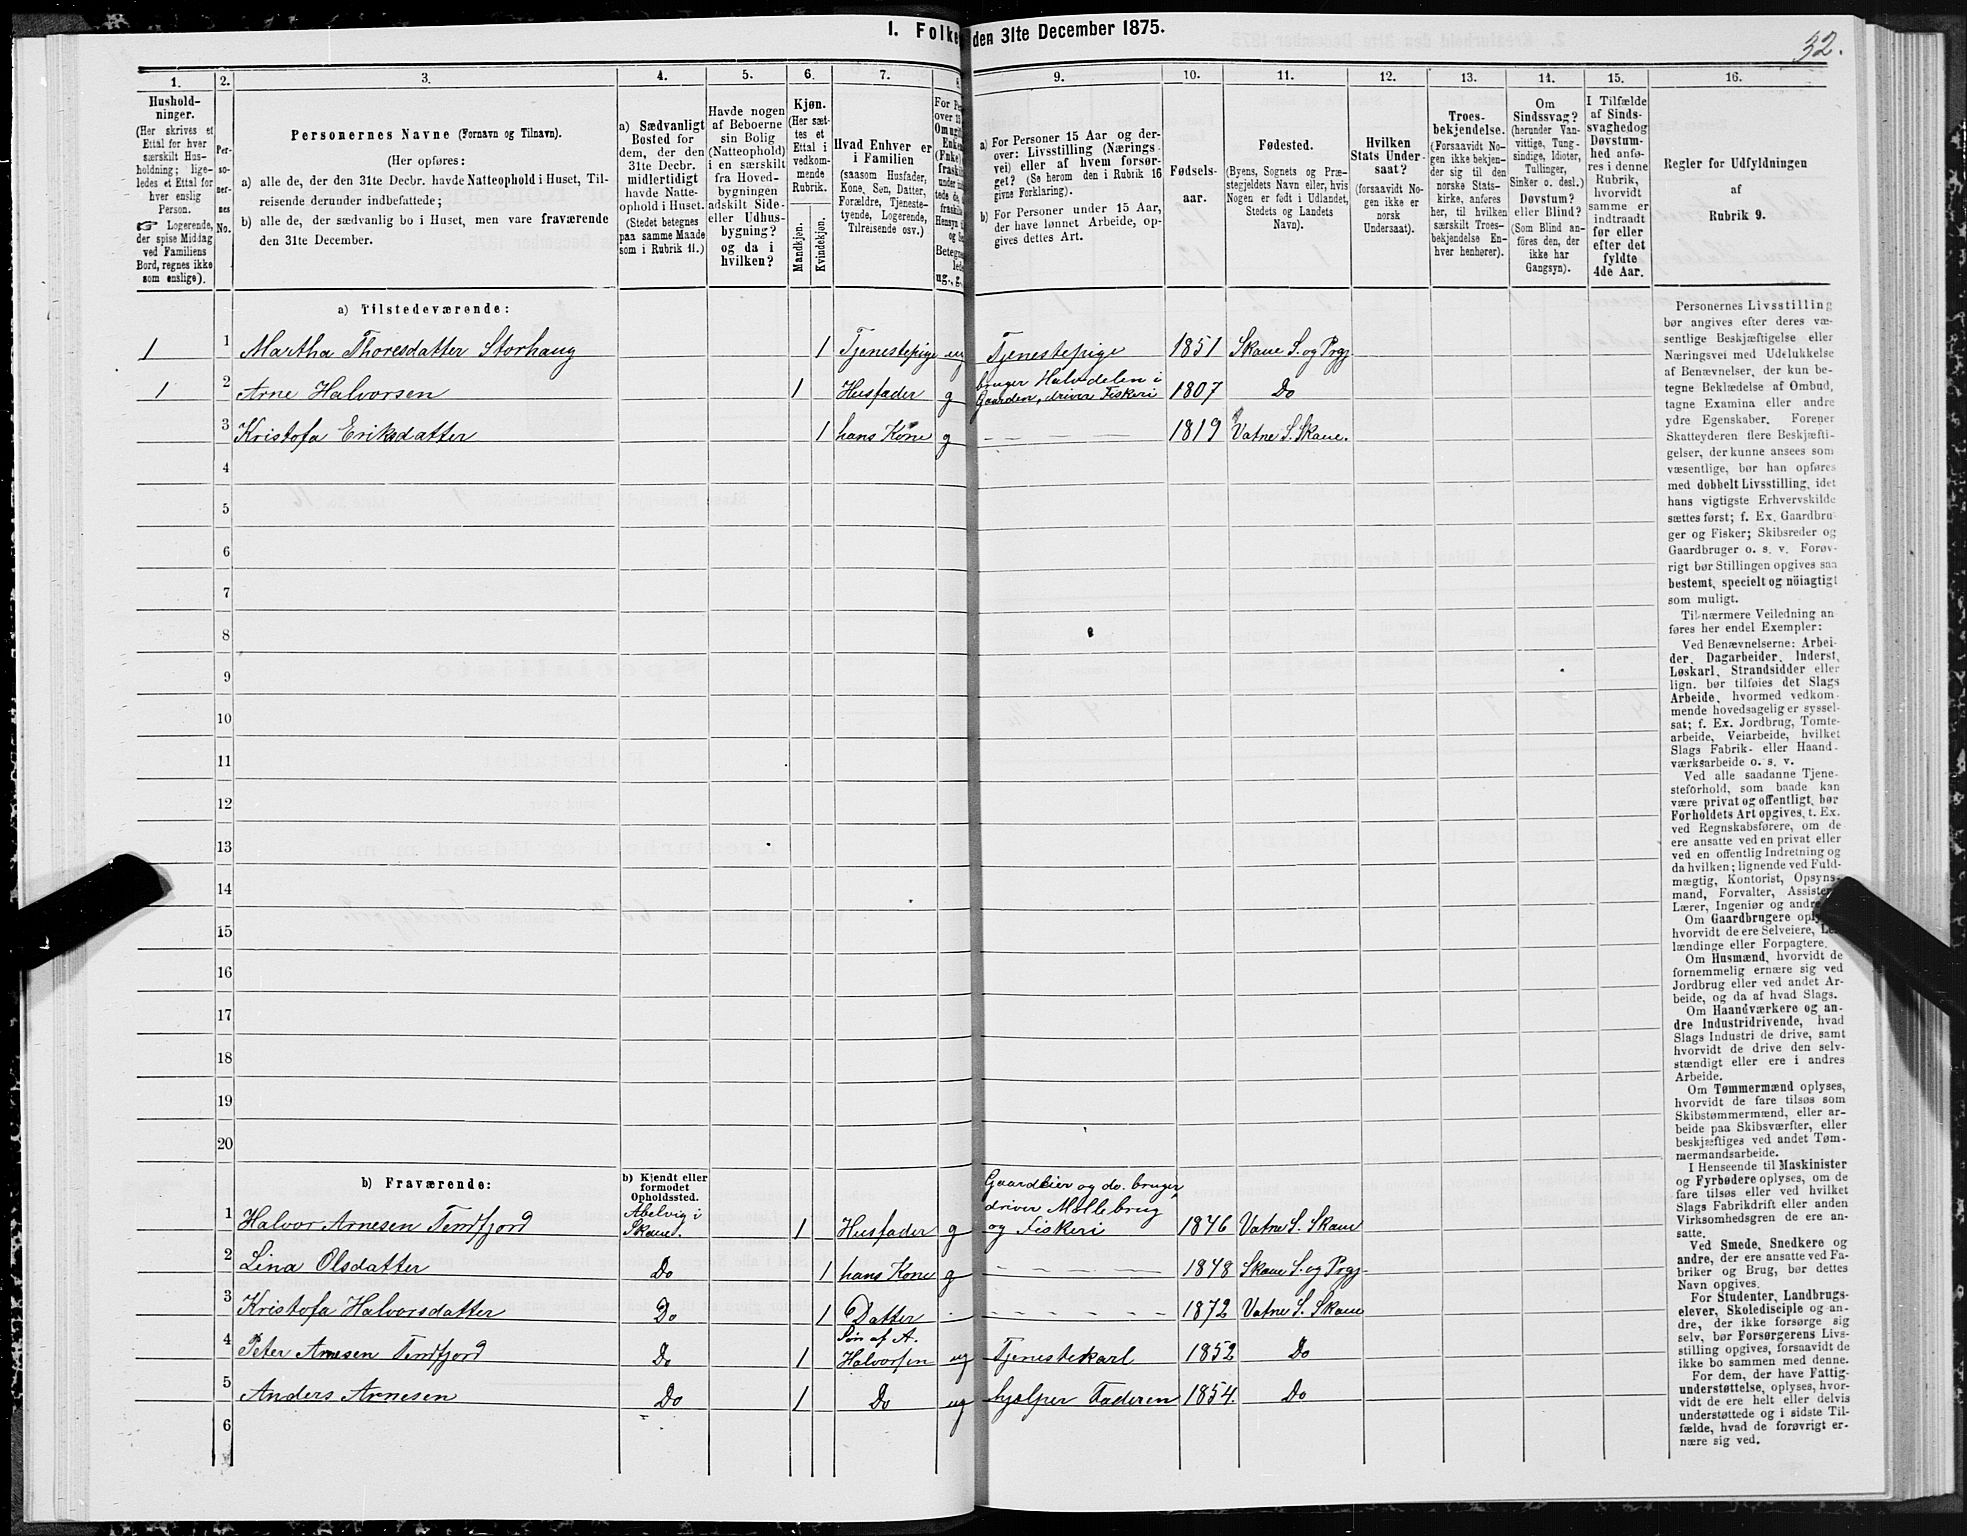 1. Folke
den 31te December 1875.
32.
1.
Hushold-
ninger.
(Her skrives et
Ettal for hver
særskilt Hus-
holdning; lige-
ledes et Ettal for
hver enslig
Person.
☞ Logerende,
der spise Middag
ved Familiens
Bord, regnes ikke
som enslige).
2.
Per-
so-
ner-
nes
No.
3.
Personernes Navne (Fornavn og Tilnavn).
(Her opføres:
a) alle de, der den 31te Decbr. havde Natteophold i Huset, Til-
reisende derunder indbefattede;
b) alle de, der sædvanlig bo i Huset, men vare fraværende
den 31te December.
4.
a) Sædvanligt
Bosted for
dem, der den
31te Decbr.
midlertidigt
havde Natte-
ophold i Huset.
(Stedet betegnes
paa samme Maade
som i Rubrik 11.)
5.
Havde nogen
af Beboerne
sin Bolig
(Natteophold)
i en særskilt
fra Hoved-
bygningen
adskilt Side-
eller Udhus-
bygning?
og da i
hvilken?
6.
Kjøn.
(Her sæt-
tes et
Ettal i
vedkom-
mende
Rubrik.
Mandkjøn.
Kvindekjøn.
7.
Hvad Enhver er
i Familien
(saasom Husfader,
Kone, Søn, Datter,
Forældre, Tjeneste-
tyende, Logerende,
Tilreisende osv.)
8
For Pe
over 15
Om ugift
Enken
(Fnke)
fraskil
under in
tede, de
fraskille
Hensyn t
og Se
Betegne
lede
ug., g.,
9.
a) For Personer 15 Aar og der-
over: Livsstilling (Nærings-
vei) eller af hvem forsør-
get? (Se herom den i Rubrik 16
givne Forklaring).
b) For Personer under 15 Aar,
der have lønnet Arbeide, op-
gives dettes Art.
10.
Fødsels-
aar.
11.
Fødested.
(Byens, Sognets og Præ-
stegjeldets Navn eller, hvis
Nogen er født i Udlandet,
Stedets og Landets
Navn).
12.
Hvilken
Stats Under-
saat?
(forsaavidt No-
gen ikke er
norsk
Undersaat).
13.
Troes-
bekjendelse.
(Forsaavidt No-
gen ikke bekjen-
der sig til den
norske Stats-
kirke, anføres
her, til hvilken
særskilt Troes-
bekjendelse En-
hver henhører).
14.
Om
Sindssvag?
(herunder Van-
vittige, Tung-
sindige, Idioter,
Tullinger,
Sinker o. desl.)
Døvstum?
eller Blind?
(Som Blind an-
føres den, der
ikke har
Gangsyn).
15.
I Tilfælde
af Sinds-
svaghed og
Døvstum-
hed anfø-
res i denne
Rubrik,
hvorvidt
samme er
indtraadt
før eller
efter det
fyldte
4de Aar.
16.
Regler for Udfyldningen
af
Rubrik 9.
a) Tilstedeværende:
1 1 Martha Thoresdatter Storhaug 1 Tjenestepige ug Tjenestepige 1851 Skaue S. og Prgj.
1 2 Arne Halvorsen 1 Husfader g bruger Halvdelen i
Gaarden, driver Fiskeri 1807 Do
3 Kristofa Eriksdatter 1 hans Kone g — — — 1819 Vatne S. Skaue.
4
5
6
7
8
9
10
11
12
13
14
15
16
17
18
19
20
b) Fraværende:
b) Kjendt eller
formodet
Opholdssted.
1 Halvor Arnesen Temfjord Abelvig i
Skaue. 1 Husfader g Gaardeier og do. bruger,
driver Møllebrug
og Fiskeri 1846 Vatne S. Skaue
2 Lina Olsdatter Do 1 hans Kone g — — — — 1848 Skaue S. og Prgj.
3 Kristofa Halvorsdatter Do 1 Datter - — — — — 1872 Vatne S. Skaue
4 Peter Arnesen Temfjord Do 1 Søn af A.
Halvorsen ug Tjenestekarl 1852 Do
5 Anders Arnesen Do 1 Do ug hjælper Faderen 1854. Do
6
Personernes Livsstilling
bør angives efter deres væ-
sentlige Beskjæftigelse eller
Næringsvei med Udelukkelse
af Benævnelser, der kun be-
tegne Beklædelse af Ombud,
tagne Examina eller andre
ydre Egenskaber. Forener
Skatteyderen flere Beskjæfti-
gelser, der kunne ansees som
væsentlige, bør han opføres
med dobbelt Livsstilling, idet
hans vigtigste Erhvervskilde
sættes først; f. Ex. Gaardbru-
ger og Fisker; Skibsreder og
Gaardbruger o. s. v. Forøv-
rigt bør Stillingen opgives saa
bestemt, specielt og nöiagtigt
som muligt.
Til nærmere Veiledning an-
føres her endel Exempler:
Ved Benævnelserne: Arbei-
der, Dagarbeider, Inderst,
Løskarl, Strandsidder eller
lign. bør tilføies det Slags
Arbeide, hvormed vedkom-
mende hovedsagelig er syssel-
sat; f. Ex. Jordbrug, Tomte-
arbeide, Veiarbeide, hvilket
Slags Fabrik- eller Haand-
værksarbeide o. s. v.
Ved alle saadanne Tjene-
steforhold, som baade kan
være privat og offentligt, bør
Forholdets Art opgives, t. Ex.
ved Regnskabsførere, om de
ere ansatte ved en privat eller
ved en offentlig Indretning og
da hvilken; lignende ved Fuld-
mægtig, Kontorist, Opsyns-
mand, Forvalter, Assiste
Lærer, Ingeniør og andre
Om Gaardbrugere oply
hvorvidt de ere Selveiere, Le
lændinge eller Forpagtere.
Om Husmænd, hvorvidt de
fornemmelig ernære sig ved
Jordbrug eller ved andet Ar-
beide, og da af hvad Slags.
Om Haandværkere og an-
dre Industridrivende, hvad
Slags Industri de drive, samt
hvorvidt de drive den selv-
stændigt eller ere i andres
Arbeide.
Om Tømmermænd oplyses,
hvorvidt de fare tilsøs som
Skibstømmermænd, eller ar-
beide paa Skibsværfter, eller
beskjæftiges ved andet Tøm-
mermandsarbeide.
I Henseende til Maskinister
og Fyrbødere oplyses, om de
fare tilsøs eller ved hvilket
Slags Fabrikdrift eller anden
Virksomhedsgren de ere an-
satte.
Ved Smede, Snedkere og
andre, der ere ansatte ved Fa-
briker og Brug, bør dettes
Navn opgives.
For Studenter, Landbrugs-
elever, Skoledisciple og an-
dre, der ikke forsørge sig
selv, bør Forsørgerens Livs-
stilling opgives, forsaavidt de
ikke bo sammen med denne.
For dem, der have Fattig-
understøttelse, oplyses, hvor-
vidt de ere helt eller delvis
understøttede og i sidste Til-
fælde, hvad de forøvrigt er-
nære sig ved.